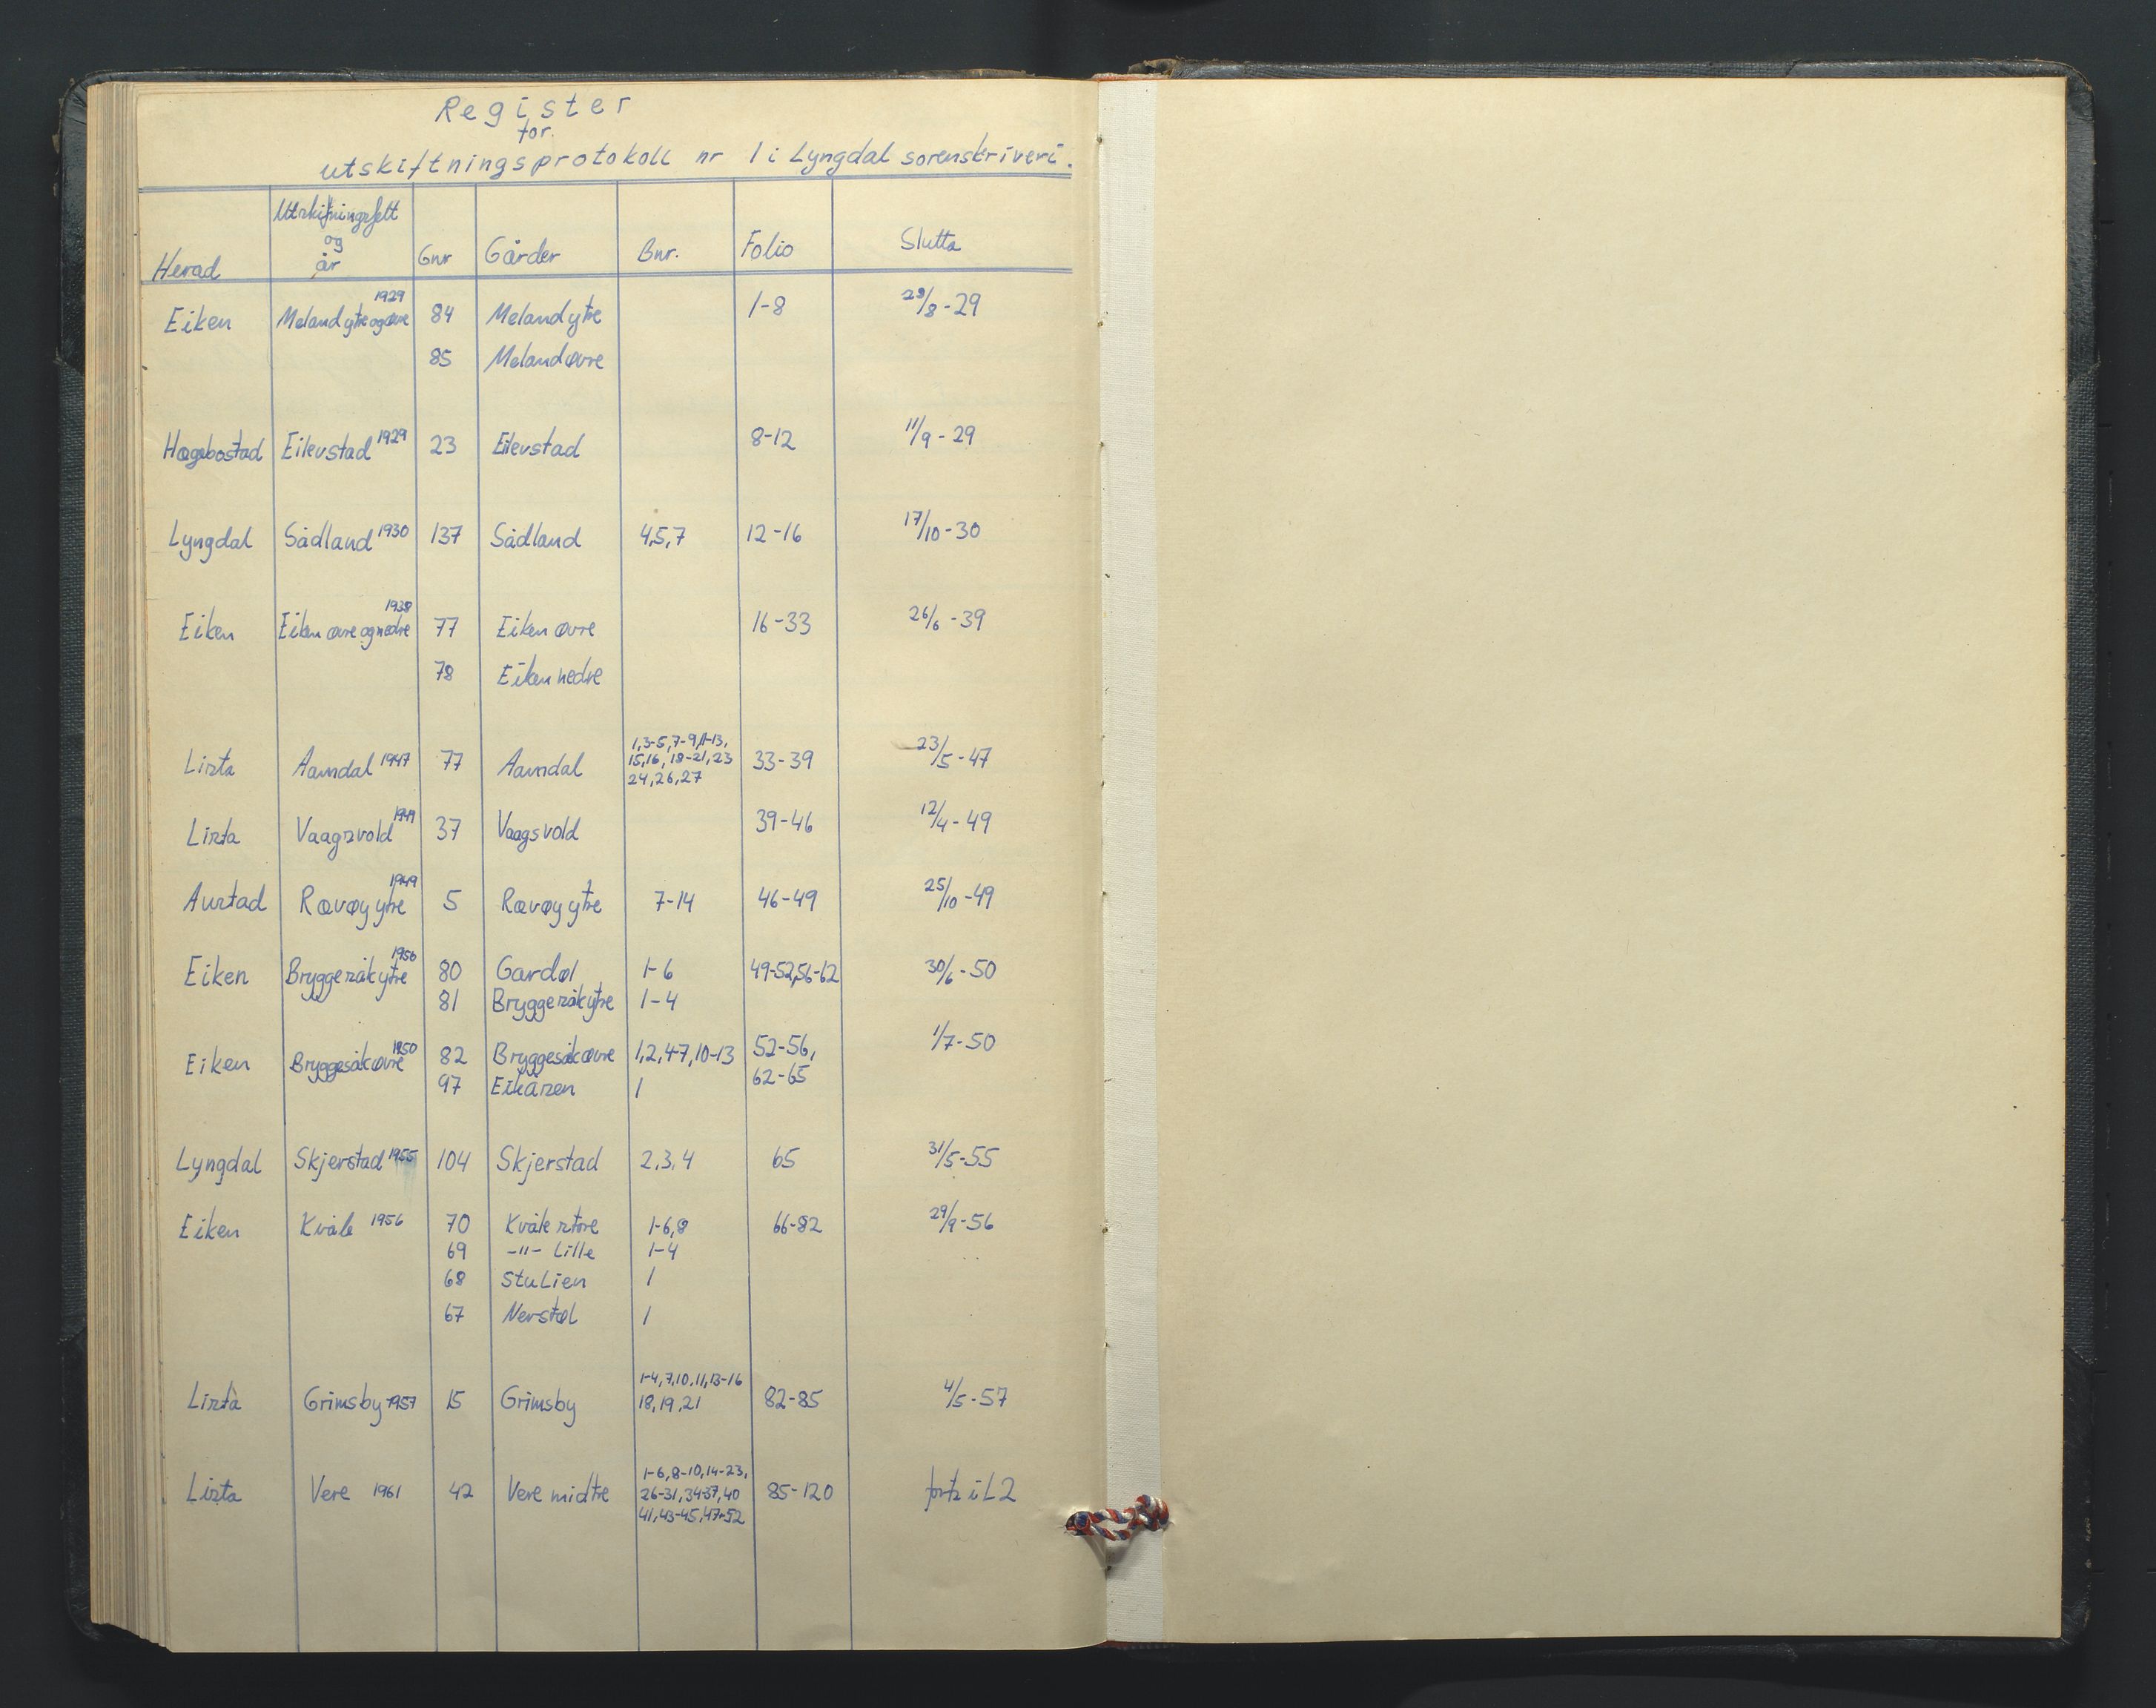 Register
for
utskiftningsprotokoll nr 1 i Lyngdal sorenskriveri.
Herad Utskiftningsfelt og år Gnr Gårder Bnr. Folio Slutta
Eiken Meland ytre og øvre 1929 84 Meland ytre 1-8 29/8-29
85 Meland øvre
Hægebostad Eilevstad 1929 23 Eilevstad 8-12 11/9-29
Lyngdal Sådland 1930 137 Sådland 4,5,7 12-16 17/10-30
Eiken Eiken øvre og nedre 1938 77 Eiken øvre 16-33 26/6-39
78 Eiken nedre
Lista Aamdal 1947 77 Aamdal 1,3-5,7-9,11-13, 33-39 23/5-47
15,16,18-21,23
24,26,27
Lista Vaagsvold 1949 37 Vaagsvold 39-46 12/4-49
Austad Rævøy ytre 1949 5 Rævøy ytre 7-14 46-49 25/10-49
Eiken Bryggesåk ytre 1950 80 Gardøl 1-6 49-52,56-62 30/6-50
81 Bryggesåk ytre 1-4
Eiken Bryggesåk øvre 1950 82 Bryggesåk øvre 1,2,4-7,10-13 52-56, 1/7-50
97 Eikåsen 1 62-65
Lyngdal Skjerstad 1955 104 Skjerstad 2,3,4 65 31/5-55
Eiken Kvåle 1956 70 Kvåle store 1-6,8 66-82 29/9-56
69 -"- Lille 1-4
68 Stulien 1
67 Nerstøl 1
Lista Grimsby 1957 15 Grimsby 1-4,7,10,11,13-16 82-85 4/5-57
18,19,21
Lista Vere 1961 42 Vere midtre 1-6,8-10,14-23, 85-120 forts i L2
26-31,34-37,40
41,43-45,47-52